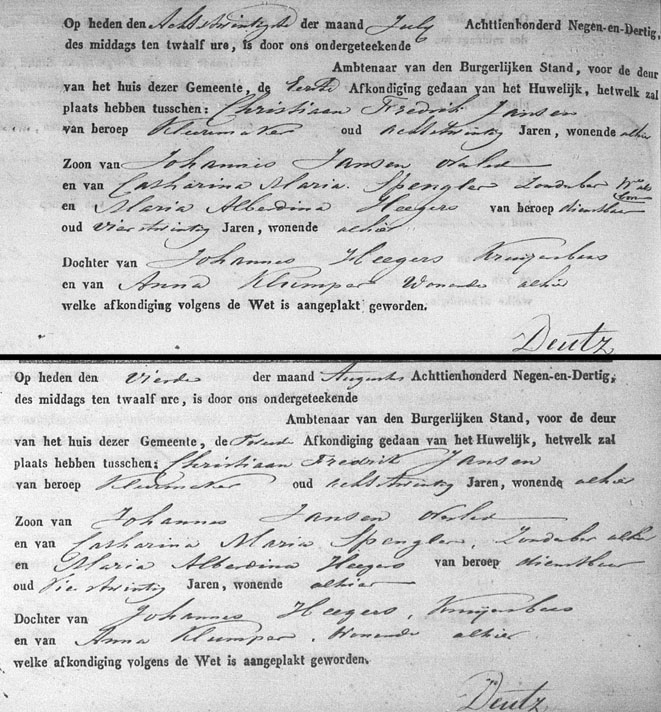 Op heden den Achtstwintigste der maand July Achttienhonderd Negen-en-Dertig,
des middags ten twaalf ure, is door ons ondergeteekende
Ambtenaar van den Burgerlijken Stand, voor de deur
van het huis dezer Gemeente, de Eerste Afkondiging gedaan van het Huwelijk, hetwelk zal
plaats hebben tusschen: Christiaan Fredrik Jansen
van beroep Kleermaker oud achtstwintig Jaren, wonende alhier
Zoon van Johannis Jansen Overled
en van Catharina Maria Spengler Zonder
en Maria Alberdina Heegers van beroep dienstbaar
oud Vierstwintig Jaren, wonende alhier
Dochter van Johannes Heegers
en van Anna Klumper Wonende alhier
welke afkondiging volgens de Wet is aangeplakt geworden.
Deutz
Op heden den Vierde der maand Augusts Achttienhonderd Negen-en-Dertig,
des middags ten twaalf ure, is door ons ondergeteekende
Ambtenaar van den Burgerlijken Stand, voor de deur
van het huis dezer Gemeente, de Tweede Afkondiging gedaan van het Huwelijk, hetwelk zal
plaats hebben tusschen: Christiaan Fredrik Jansen
van beroep Kleermaker oud achtstwintig Jaren, wonende alhier
Zoon van Johannes Jansen Overled
en van Catharina Maria Spengler, Zonder alhier
en Maria Alberdina Heegers van beroep dienstbaar
oud Vierstwintig Jaren, wonende alhier
Dochter van Johannes Heegers,
en van Anna Klumper, Wonende alhier
welke afkondiging volgens de Wet is aangeplakt geworden.
Deutz